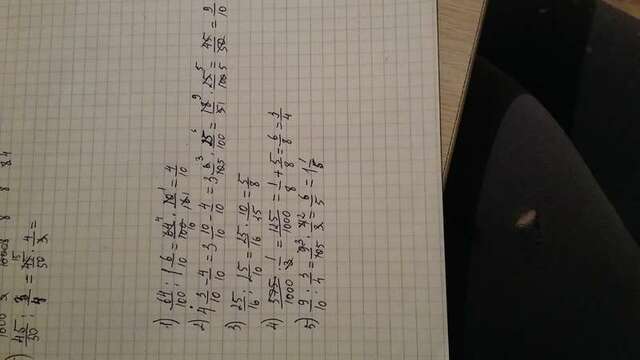 45/50 : 3/4 = 45/50 · 4/3 =
1) 64/100 : 1 6/10 = 64/100 · 10/16 = 4/10
2) 4 3/10 - 4/10 = 3 10/10 - 4/10 = 3 6/10 · 25/100 = 18/51 · 25/100 = 45/50 = 9/10
3) 25/16 : 25/10 = 25/16 · 10/25 = 5/8
4) 575/1000 · 1/3 = 125/1000 = 1/8 + 5/8 = 6/8 = 3/4
5) 9/10 : 3/4 = 9/105 · 4/3 = 6/5 = 1 1/5